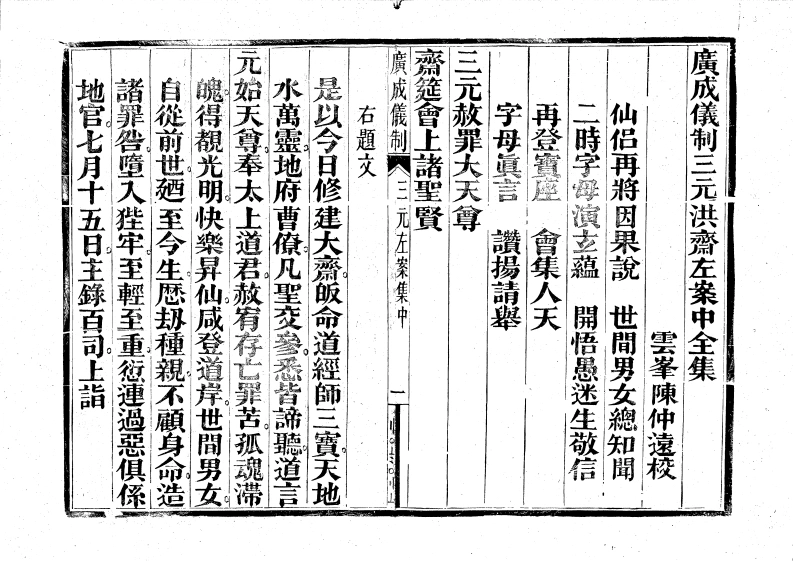 廣成儀制三元洪齋左案中全集
雲峯陳仲遠校
仙侶再將因果說　世間男女總知聞
二時字母演玄蘊　開悟愚迷生敬信
再登寶座　會集人天
字母眞言　讚揚請舉
三元赦罪大天尊
齋筵會上諸聖賢
廣成儀制　三元左案集中　一
右題文
是以今日修建大齋。皈命道經師三寶天地
水萬靈。地府曹僚。凡聖交參。悉皆諦聽。道言
元始天尊。奉太上道君。赦宥存亡罪苦。孤魂滯
魄。得覩光明。快樂昇仙。咸登道岸。世間男女。
自從前世。廼至今生。歷劫種親。不顧身命。造
諸罪咎。墮入狴牢。至輕至重。愆連過惡。俱係
地官。七月十五日。主錄百司。上詣